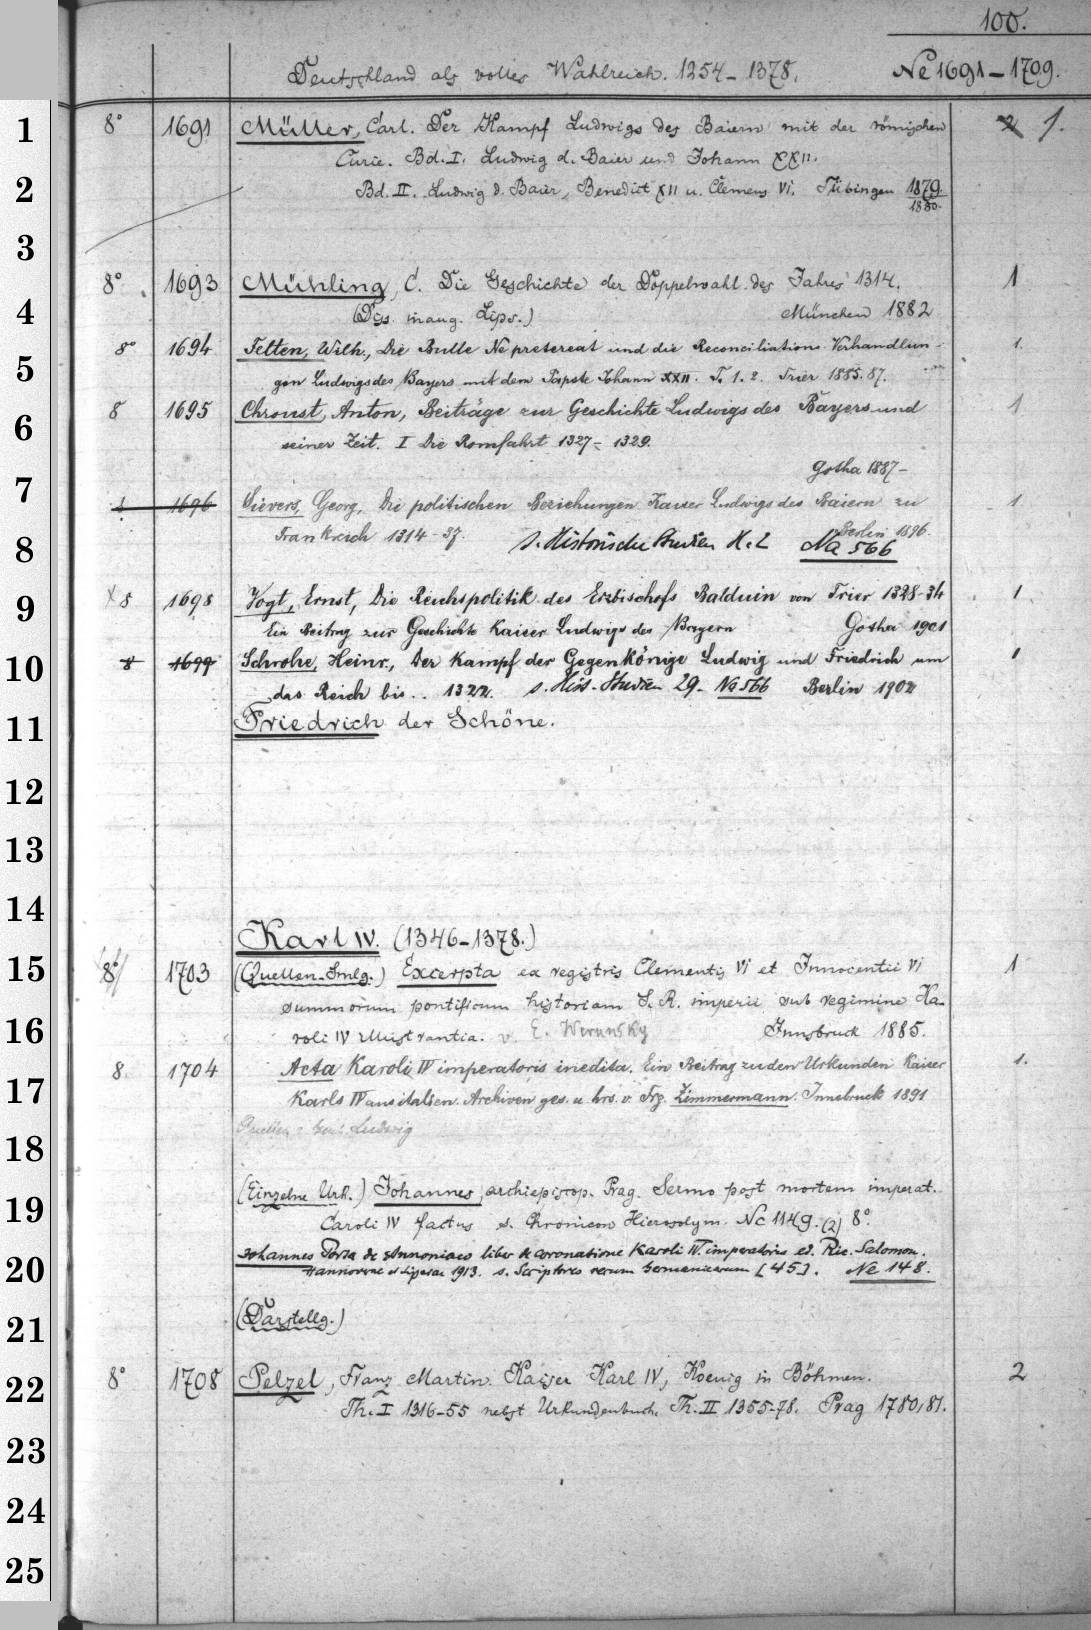 100.
Deutschland als volles Wahlreich. 1254-1378. Ne 1691-1709.
1 8° 1691 Müller, Carl. Der Kampf Ludwigs des Baiern mit der römischen 2 1.
Curie. Bd. I. Ludwig d. Baier und Johann XXII.
2 Bd. II. Ludwig d. Baier, Benedict XII u. Clemens VI. Tübingen 1879
1880.
3
8° 1693 Mühling, C. Die Geschichte der Doppelwahl des Jahres 1314. 1
4 (Dis. inaug. Lips.) München 1882
8° 1694 Felten, Wilh., Die Bulle Ne pretereat und die Reconciliations Verhandlun- 1.
5 gen Ludwigs des Bayers mit dem Papste Johann XXII. T. 1. 2. Trier 1885. 87.
8 1695 Chroust, Anton, Beiträge zur Geschichte Ludwigs des Bayers und 1
6 seiner Zeit. I Die Romfahrt 1327-1329.
Gotha 1887-
7 8 1696 Sievers, Georg, Die politischen Beziehungen Kaiser Ludwigs des Baiern zu 1.
Frankreich 1314-37. Berlin 1896.
8 s. Historische Studien H. 2 Na 566
9 x 8 1698 Vogt, Ernst, Die Reichspolitik des Erzbischofs Balduin von Trier 1328-34 1
Ein Beitrag zur Geschichte Kaiser Ludwigs des Bayern Gotha 1901
10 8 1699 Schrohe, Heinr., Der Kampf der Gegenkönige Ludwig und Friedrich um 1
das Reich bis .. 1322. s. Hist. Studien 29. Na 566 Berlin 1902
11 Friedrich der Schöne.
12
13
14
Karl IV. (1346-1378.)
15 8° 1703 (Quellen-Smlg.) Excerpta ex registris Clementis VI et Innocentii VI 1
summorum pontificum historiam S. R. imperii sub regimine Ka-
16 roli IV illustrantia. v. E. Werunsky Innsbruck 1885.
8. 1704 Acta Karoli IV imperatoris inedita. Ein Beitrag zu den Urkunden Kaiser 1.
17 Karls IV aus italien. Archiven ges. u. hrs. v. Frz. Zimmermann. Innsbruck 1891
Ludwig
18
19 (Einzelne Urk.) Johannes, archiepiscop. Prag. Sermo post mortem imperat.
Caroli IV factus s. Chronicon Hierosolym. Nc 1149. (2) 8°.
20 Johannes Porta de Annoniaco liber de coronatione Karoli IV. imperatoris ed. Ric. Salomon.
Hannoverae et Lipsiae 1913. s. Scriptores rerum Germanicarum [45]. Ne 148.
21 (Darstellg.)
22 8° 1708 Pelzel, Franz Martin. Kaiser Karl IV, Koenig in Böhmen. 2
Th. I 1316-55 nebst Urkundenbuch. Th. II 1355-78. Prag 1780/81.
23
24
25